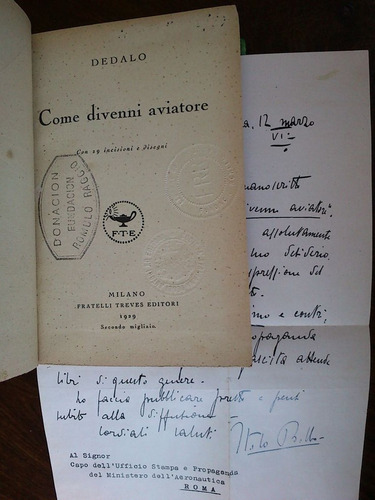 DEDALO
Come divenni aviatore
Con 19 incisioni e disegni
DONACION
FUNDACION
ROMULO RAGG
F·T·E
MILANO
FRATELLI TREVES EDITORI
1929
Secondo migliaio
a, 12 marzo
VI
manoscritto
divenni aviatori".
assolutamente
mo e contri
propaganda
attende
libri di questo genere.
lo faccia pubblicare presto e pensi
subito alla diffusione
Cordiali saluti
Italo Balbo
Al Signor
Capo dell'Ufficio Stampa e Propaganda
del Ministero dell'Aeronautica
ROMA